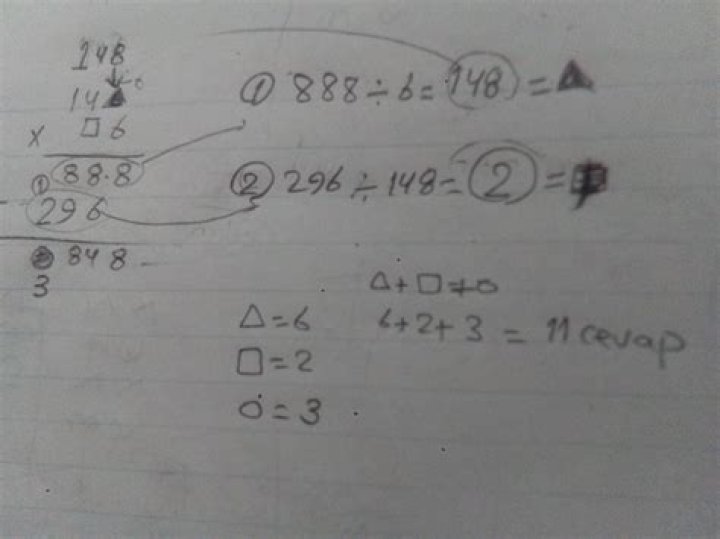 148
14▲
x □6
① 88.8
296
● 848
3
① 888÷6=148=▲
② 296÷148=2=■
△+□+○
△=6
6+2+3=11 cevap
□=2
○=3